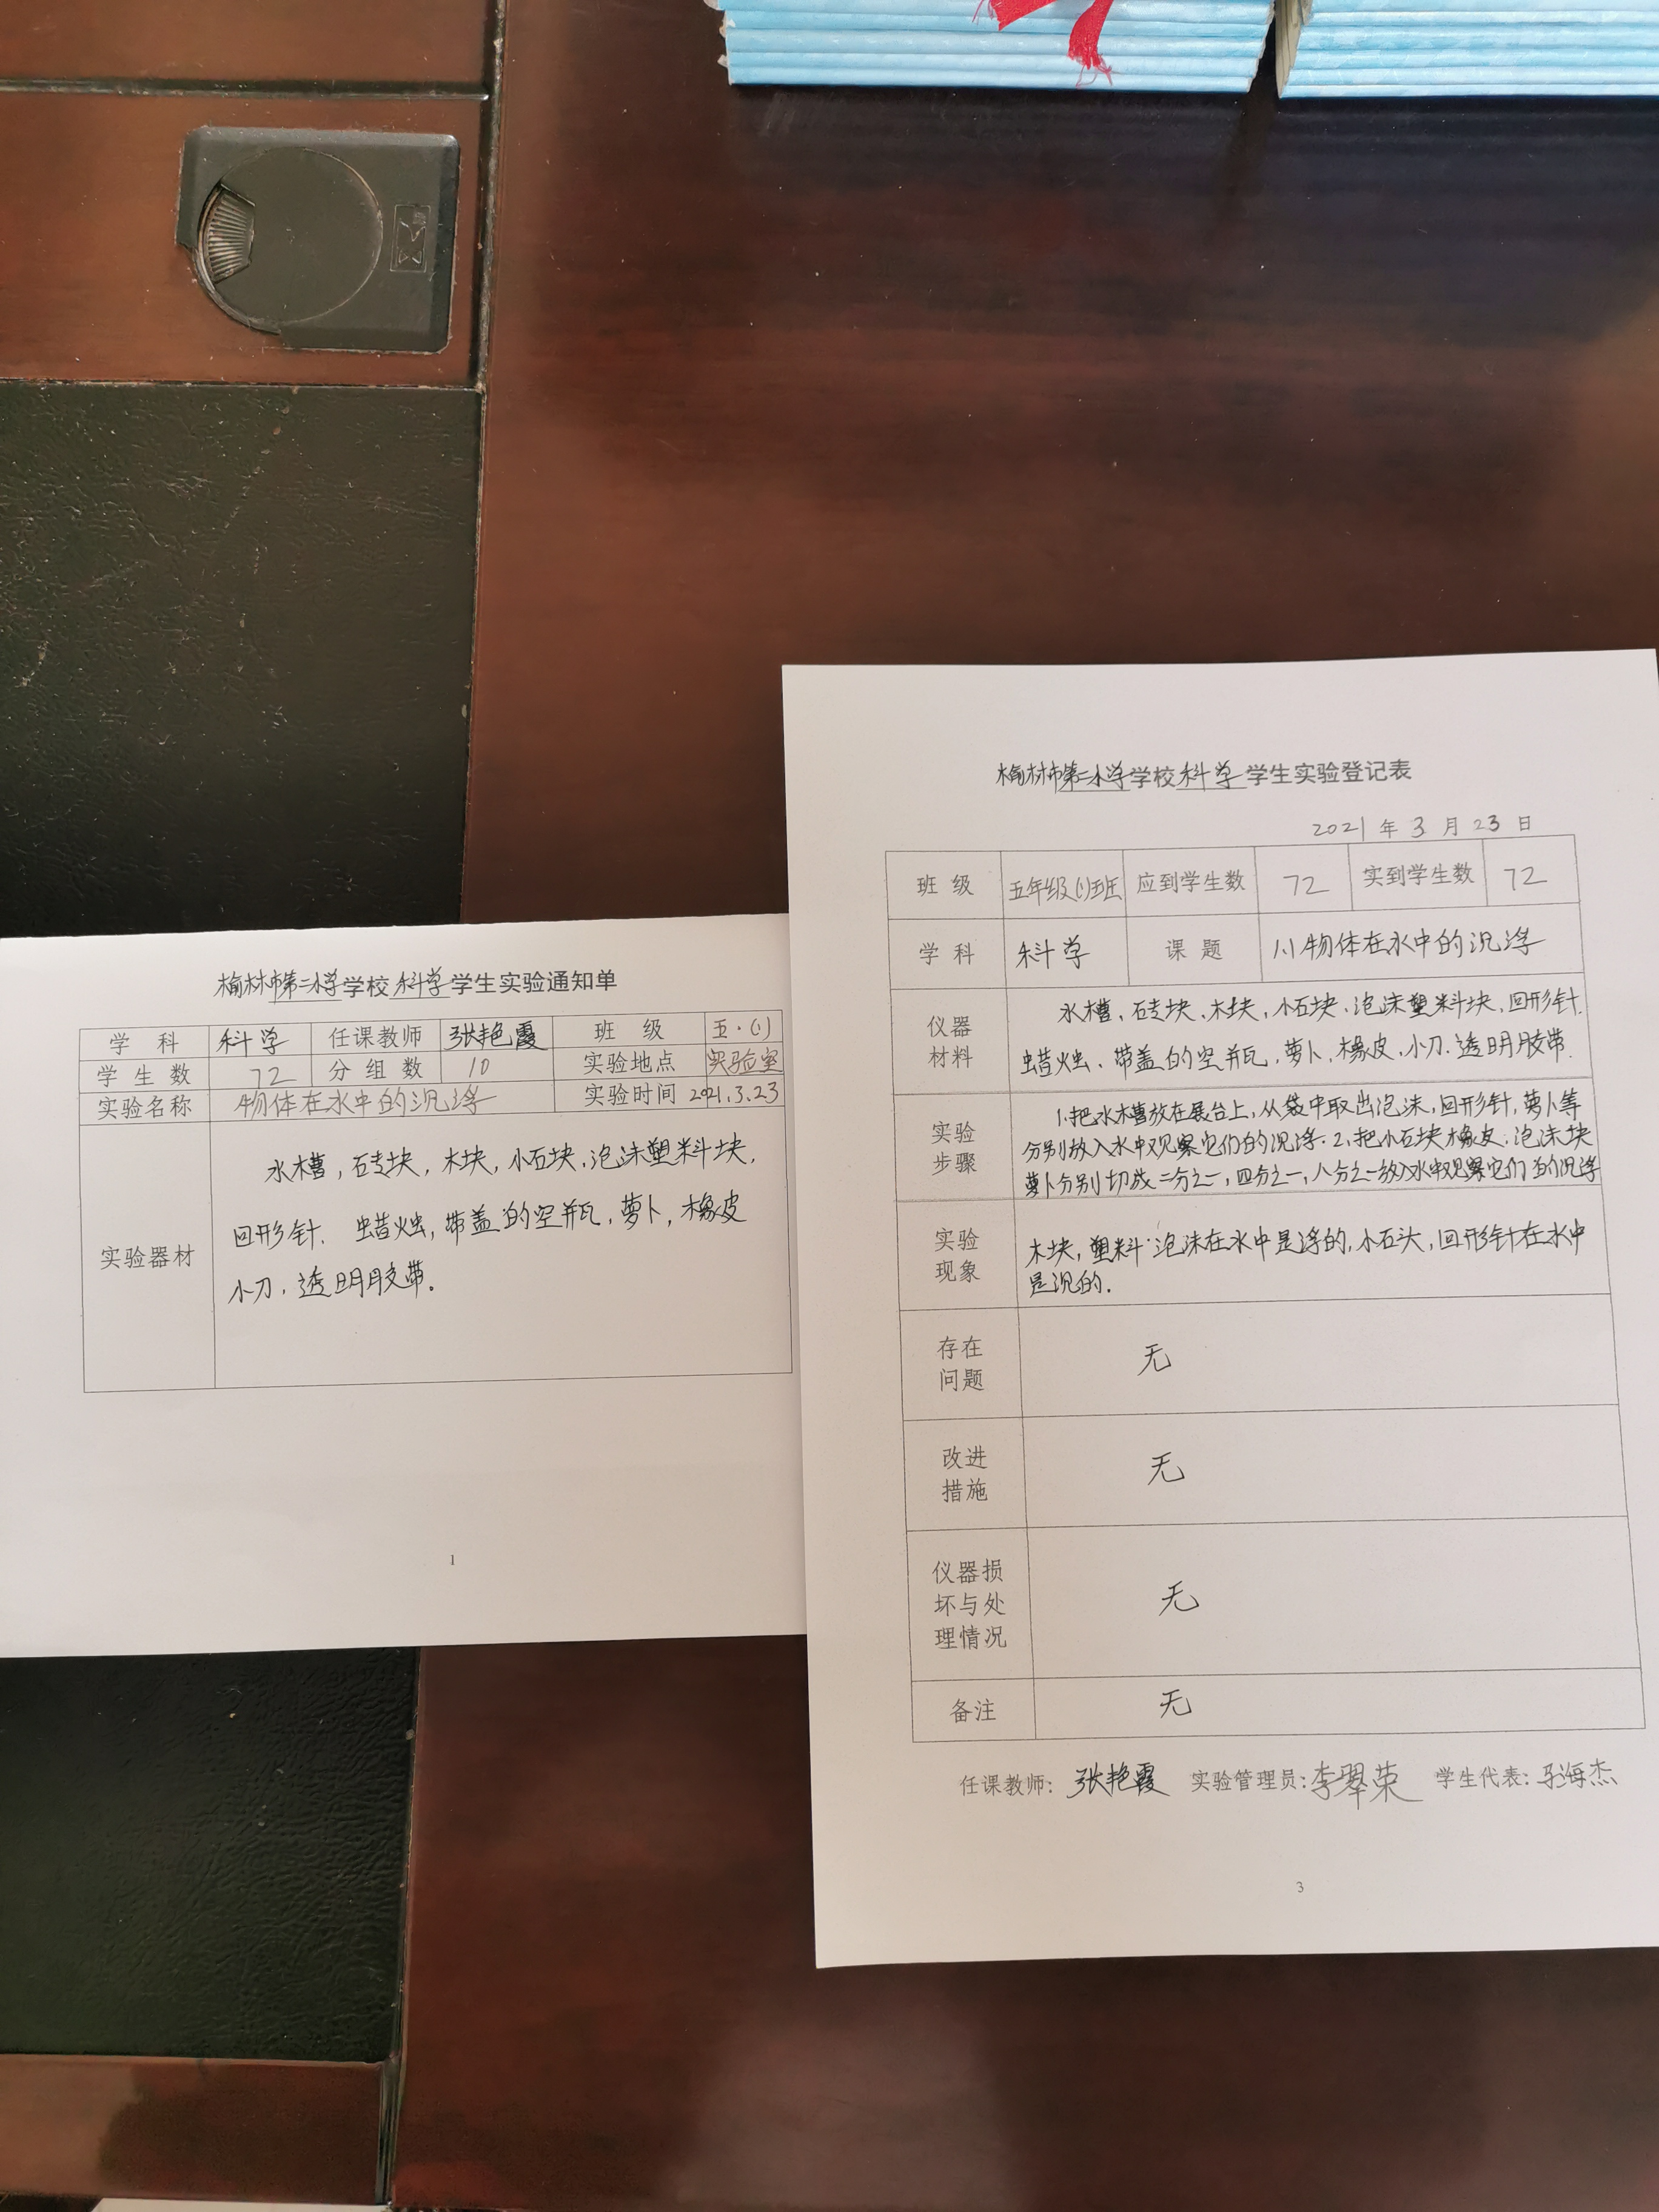 榆林市第二小学学校科学学生实验通知单
学 科 科学 任课教师 张艳霞 班 级 五·(1)
学生数 72 分组数 10 实验地点 实验室
实验名称 物体在水中的沉浮 实验时间 2021.3.23
实验器材
水槽,砖块,木块,小石块,泡沫塑料块,
回形针. 蜡烛,带盖的空瓶,萝卜,橡皮
小刀,透明胶带.
1
榆林市第二小学学校科学学生实验登记表
2021年3月23日
班 级 五年级(1)班 应到学生数 72 实到学生数 72
学 科 科学 课 题 1.1物体在水中的沉浮
仪器
材料
水槽、砖块、木块,小石块、泡沫塑料块,回形针.
蜡烛、带盖的空瓶,萝卜,橡皮、小刀.透明胶带.
实验
步骤
1.把水槽放在展台上,从袋中取出泡沫,回形针,萝卜等
分别放入水中观察它们的沉浮.2.把小石块橡皮,泡沫块
萝卜分别切成二分之一,四分之一,八分之一放入水中观察它们的沉浮
实验
现象
木块,塑料泡沫在水中是浮的,小石头,回形针在水中
是沉的.
存在
问题
无
改进
措施
无
仪器损
坏与处
理情况
无
备注 无
任课教师: 张艳霞 实验管理员:李翠荣 学生代表: 海杰
3